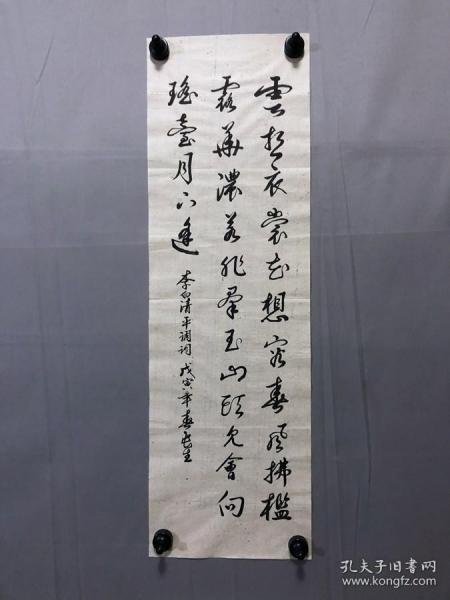 雲想衣裳花想容春風拂檻
露華濃若非羣玉山頭見會向
瑤臺月下逢
李白清平調詞 戊寅年春長生
孔夫子旧书网
www.kongfz.com